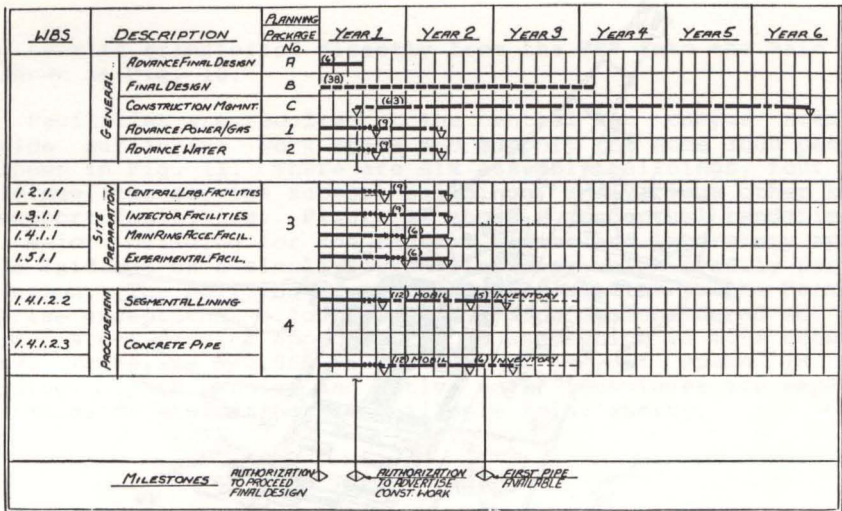 WBS DESCRIPTION PLANNING PACKAGE No. YEAR 1 YEAR 2 YEAR 3 YEAR 4 YEAR 5 YEAR 6
GENERAL
ADVANCE FINAL DESIGN A (6)
FINAL DESIGN B (38)
CONSTRUCTION MGMNT. C (63)
ADVANCE POWER/GAS 1 (9)
ADVANCE WATER 2 (9)
SITE PREPARATION
1.2.1.1 CENTRAL LAB. FACILITIES (9)
1.3.1.1 INJECTOR FACILITIES (9)
3
1.4.1.1 MAIN RING ACCE. FACIL. (6)
1.5.1.1 EXPERIMENTAL FACIL. (6)
PROCUREMENT
1.4.1.2.2 SEGMENTAL LINING (12) MOBIL (5) INVENTORY
4
1.4.1.2.3 CONCRETE PIPE
MOBIL (6) INVENTORY
MILESTONES
AUTHORIZATION TO PROCEED FINAL DESIGN
AUTHORIZATION TO ADVERTISE CONST. WORK
FIRST PIPE AVAILABLE